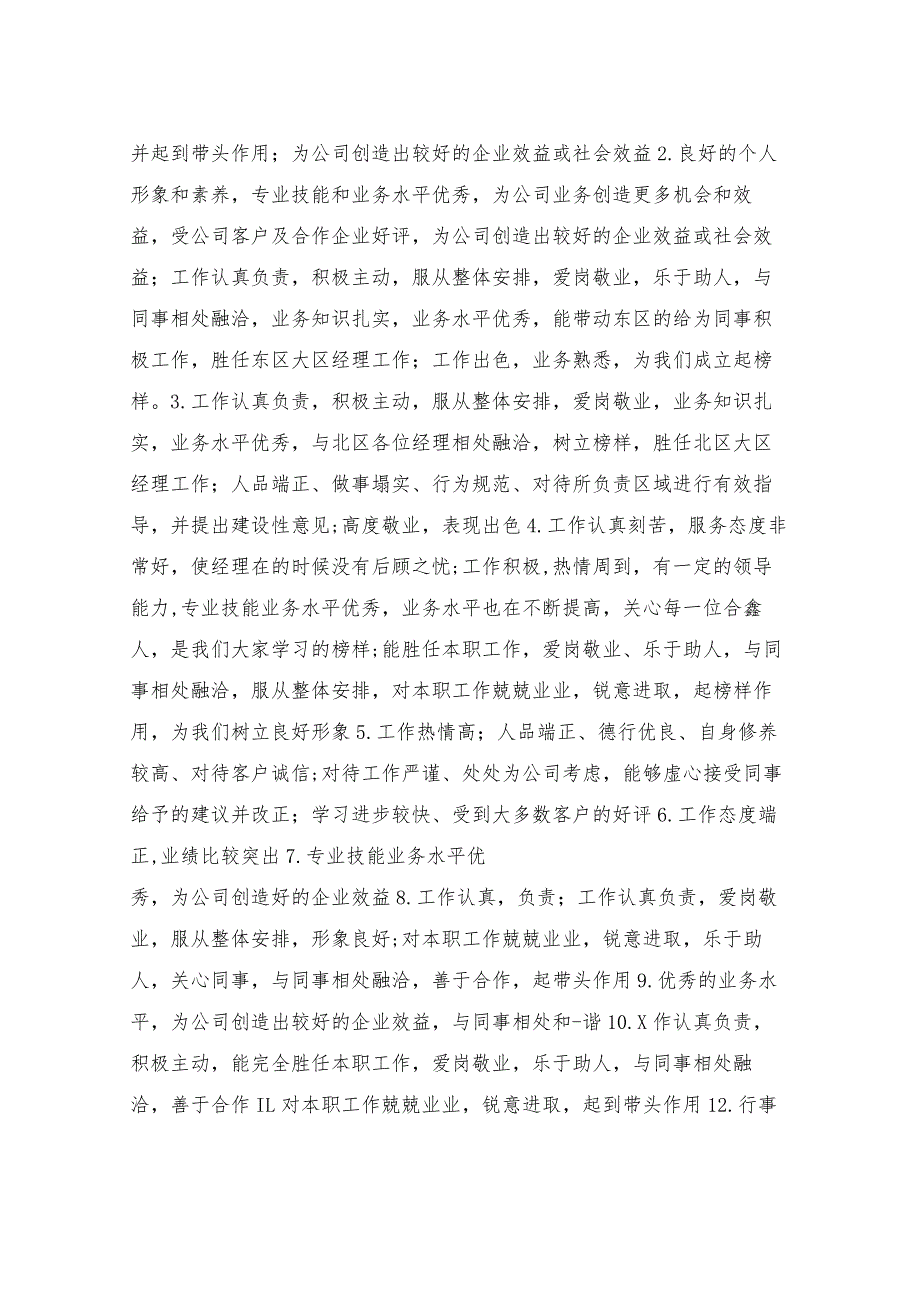 并起到带头作用；为公司创造出较好的企业效益或社会效益 2.良好的个人
形象和素养，专业技能和业务水平优秀，为公司业务创造更多机会和效
益，受公司客户及合作企业好评，为公司创造出较好的企业效益或社会效
益；工作认真负责，积极主动，服从整体安排，爱岗敬业，乐于助人，与
同事相处融洽，业务知识扎实，业务水平优秀，能带动东区的给为同事积
极工作，胜任东区大区经理工作；工作出色，业务熟悉，为我们成立起榜
样。3.工作认真负责，积极主动，服从整体安排，爱岗敬业，业务知识扎
实，业务水平优秀，与北区各位经理相处融洽，树立榜样，胜任北区大区
经理工作；人品端正、做事塌实、行为规范、对待所负责区域进行有效指
导，并提出建设性意见;高度敬业，表现出色 4.工作认真刻苦，服务态度非
常好，使经理在的时候没有后顾之忧;工作积极,热情周到，有一定的领导
能力,专业技能业务水平优秀，业务水平也在不断提高，关心每一位合鑫
人，是我们大家学习的榜样;能胜任本职工作，爱岗敬业、乐于助人，与同
事相处融洽，服从整体安排，对本职工作兢兢业业，锐意进取，起榜样作
用，为我们树立良好形象 5.工作热情高；人品端正、德行优良、自身修养
较高、对待客户诚信;对待工作严谨、处处为公司考虑，能够虚心接受同事
给予的建议并改正；学习进步较快、受到大多数客户的好评 6.工作态度端
正,业绩比较突出 7.专业技能业务水平优
秀，为公司创造好的企业效益 8.工作认真，负责；工作认真负责，爱岗敬
业，服从整体安排，形象良好;对本职工作兢兢业业，锐意进取，乐于助
人，关心同事，与同事相处融洽，善于合作，起带头作用 9.优秀的业务水
平，为公司创造出较好的企业效益，与同事相处和-谐 10.X 作认真负责，
积极主动，能完全胜任本职工作，爱岗敬业，乐于助人，与同事相处融
洽，善于合作 IL 对本职工作兢兢业业，锐意进取，起到带头作用 12.行事